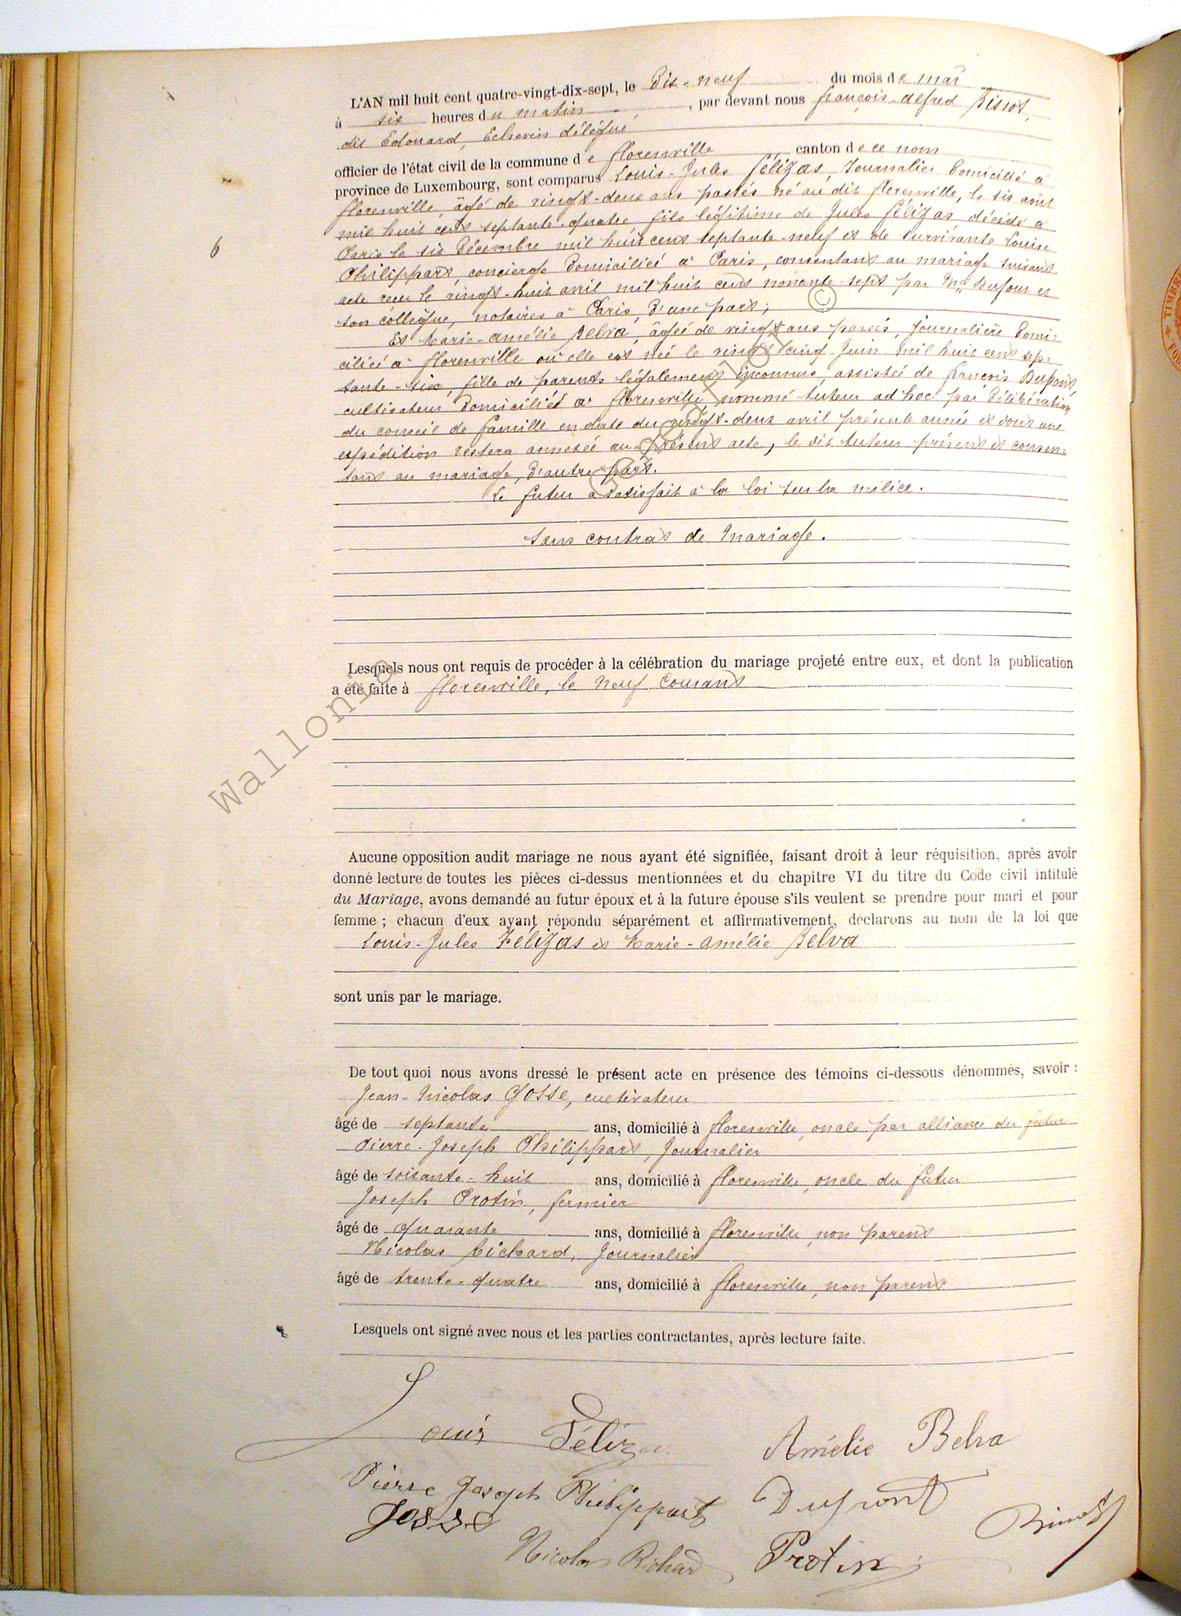 L'AN mil huit cent quatre-vingt-dix-sept, le Dix-neuf du mois de mai
à six heures du matin, par devant nous françois-alfred
dit Edouard, Echevin délégué
officier de l'état civil de la commune de florenville canton de ce nom
province de Luxembourg, sont comparus Louis-Jules Félizas, Journalier Domicilié à
florenville, âgé de vingt-deux ans passés né au dit florenville, le six août
mil huit cent septante-quatre fils légitime de Jules Félizas décédé à
Paris le six Décembre mil huit cent septante-neuf et de survivante Louise
Philippart, concierge Domiciliée à Paris, consentant au mariage suivant
acte reçu le vingt-huit avril mil huit cent nonante-sept par Me Dufour et
son collègue, notaires à Paris, D'une part;
Et Marie-amélie Belva, âgée de vingt ans passés, journalière Domi-
ciliée à florenville où elle est née le vingt cinq Juin mil huit cent sep-
tante-six, fille de parents légalement inconnus, assistée de françois Dufront,
cultivateur Domicilié à florenville, nommé tuteur ad hoc par Délibération
du conseil de famille en date du vingt-deux avril présente année et dont une
expédition restera annexée au présent acte, le dit tuteur présent et consen-
tant au mariage, D'autre part.
Le futur a satisfait à la loi sur la milice.
Sans contrat de Mariage.
6
Wallonia
©
Lesquels nous ont requis de procéder à la célébration du mariage projeté entre eux, et dont la publication
a été faite à florenville, le neuf courant
Aucune opposition audit mariage ne nous ayant été signifiée, faisant droit à leur réquisition, après avoir
donné lecture de toutes les pièces ci-dessus mentionnées et du chapitre VI du titre du Code civil intitulé
du Mariage, avons demandé au futur époux et à la future épouse s'ils veulent se prendre pour mari et pour
femme ; chacun d'eux ayant répondu séparément et affirmativement, déclarons au nom de la loi que
Louis-Jules Félizas et Marie-amélie Belva
sont unis par le mariage.
De tout quoi nous avons dressé le présent acte en présence des témoins ci-dessous dénommés, savoir :
Jean-Nicolas Gosse, cultivateur
âgé de septante ans, domicilié à florenville, oncle par alliance du futur
Pierre-Joseph Philippart, Journalier
âgé de soixante-huit ans, domicilié à florenville, oncle du futur
Joseph Protin, fermier
âgé de quarante ans, domicilié à florenville, non parent
Nicolas Richard, Journalier
âgé de trente-quatre ans, domicilié à florenville, non parent
Lesquels ont signé avec nous et les parties contractantes, après lecture faite.
Louis Féliza Amélie Belva
Pierre Joseph Philippart Dufront
Gosse
Nicolas Richard Protin
TIMBRE